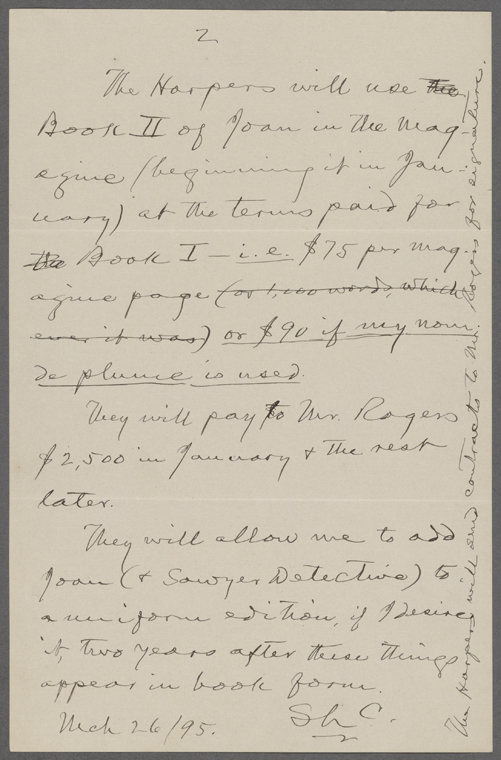 2
The Harpers will use the
Book II of Joan in the Mag-
azine (beginning it in Jan-
uary) at the terms paid for
the Book I — i.e. $75 per mag-
azine page (or 1,000 words, which
ever it was) or $90 if my nom
de plume is used.
They will pay to Mr. Rogers
$2,500 in January & the rest
later.
They will allow me to add
Joan (& Sawyer Detective) to
a uniform edition, if I desire
it, two years after these things
appear in book form.
Mch 26/95. SLC.
The Harpers will send contracts to Mr. Rogers for signature.